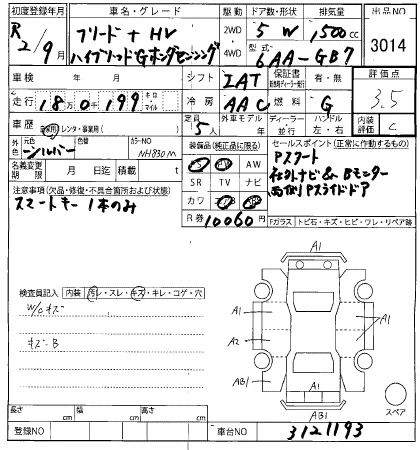 初度登録年月 車名・グレード 駆動 ドア数・形状 排気量 出品NO
R2/9月 フリード+HV 2WD 5W 1500cc 3014
ハイブリッドGホンダセンシング 4WD 型式 6AA-GB7
車検 年 月 シフト IAT 保証書 有・無 評価点
走行 18万0千199 キロ マイル 冷房 AAC 燃料 G 3.5
車歴 自家用 レンタ・事業用( ) 定員 5人 外車モデル ディーラー 並行 ハンドル 左・右 内装評価 C
外色 元色 シルバー 色替 カラーNO NH830M 装備品(純正品に限る) セールスポイント(正常に動作するもの)
名義変更期限 月 日迄 積載 t AW
SR TV ナビ
カワ
R券 10060円
Pスタート
社外ナビ&Bモニター
両側Pスライドドア
注意事項(欠品・修復・不具合箇所および状態)
スマートキー1本のみ
Fガラス トビ石・キズ・ヒビ・ワレ・リペア跡
検査員記入 内装 汚レ・スレ・キズ・キレ・コゲ・穴
W/Cキズ
キズ・B
A1
A1 A1
A2
AB1 A1
AB1
スペア
長さ cm 幅 cm 高さ cm
登録NO 車台NO 3121193